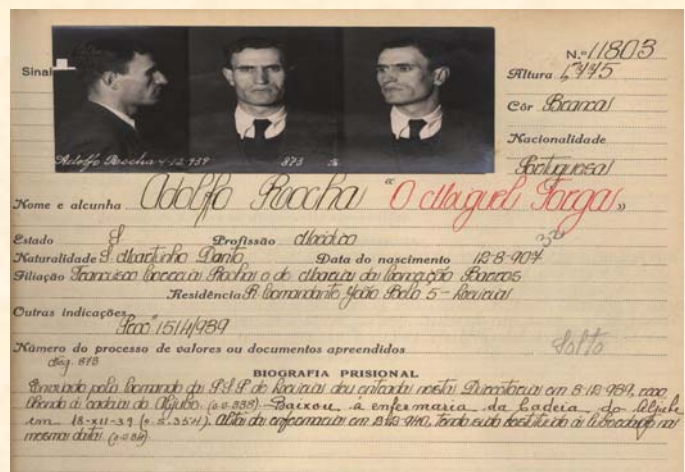 N.º 11803
Sinal
Altura 1,775
Côr Branca
Nacionalidade
Portuguesa
Adolfo Rocha 4-12-939 873
Nome e alcunha Adolfo Rocha "O Miguel Torga"
Estado S Profissão Médico
Naturalidade S. Martinho Danta Data do nascimento 12-8-907
Filiação Francisco Correia Rocha e de Maria da Conceição Barros
Residência R. Comandante João Belo 5 - Leiria
Outras indicações
Proc.º 1514/939
Número do processo de valores ou documentos apreendidos Solto
873
BIOGRAFIA PRISIONAL
Enviado pelo Comando da P.S.P. de Leiria deu entrada nesta Directoria em 8-12-939, reco
lhendo à cadeia do Aljube. Baixou à enfermaria da Cadeia do Aljube
em 13-XII-39 Alta da enfermaria em tendo sido restituído à liberdade na
mesma data.